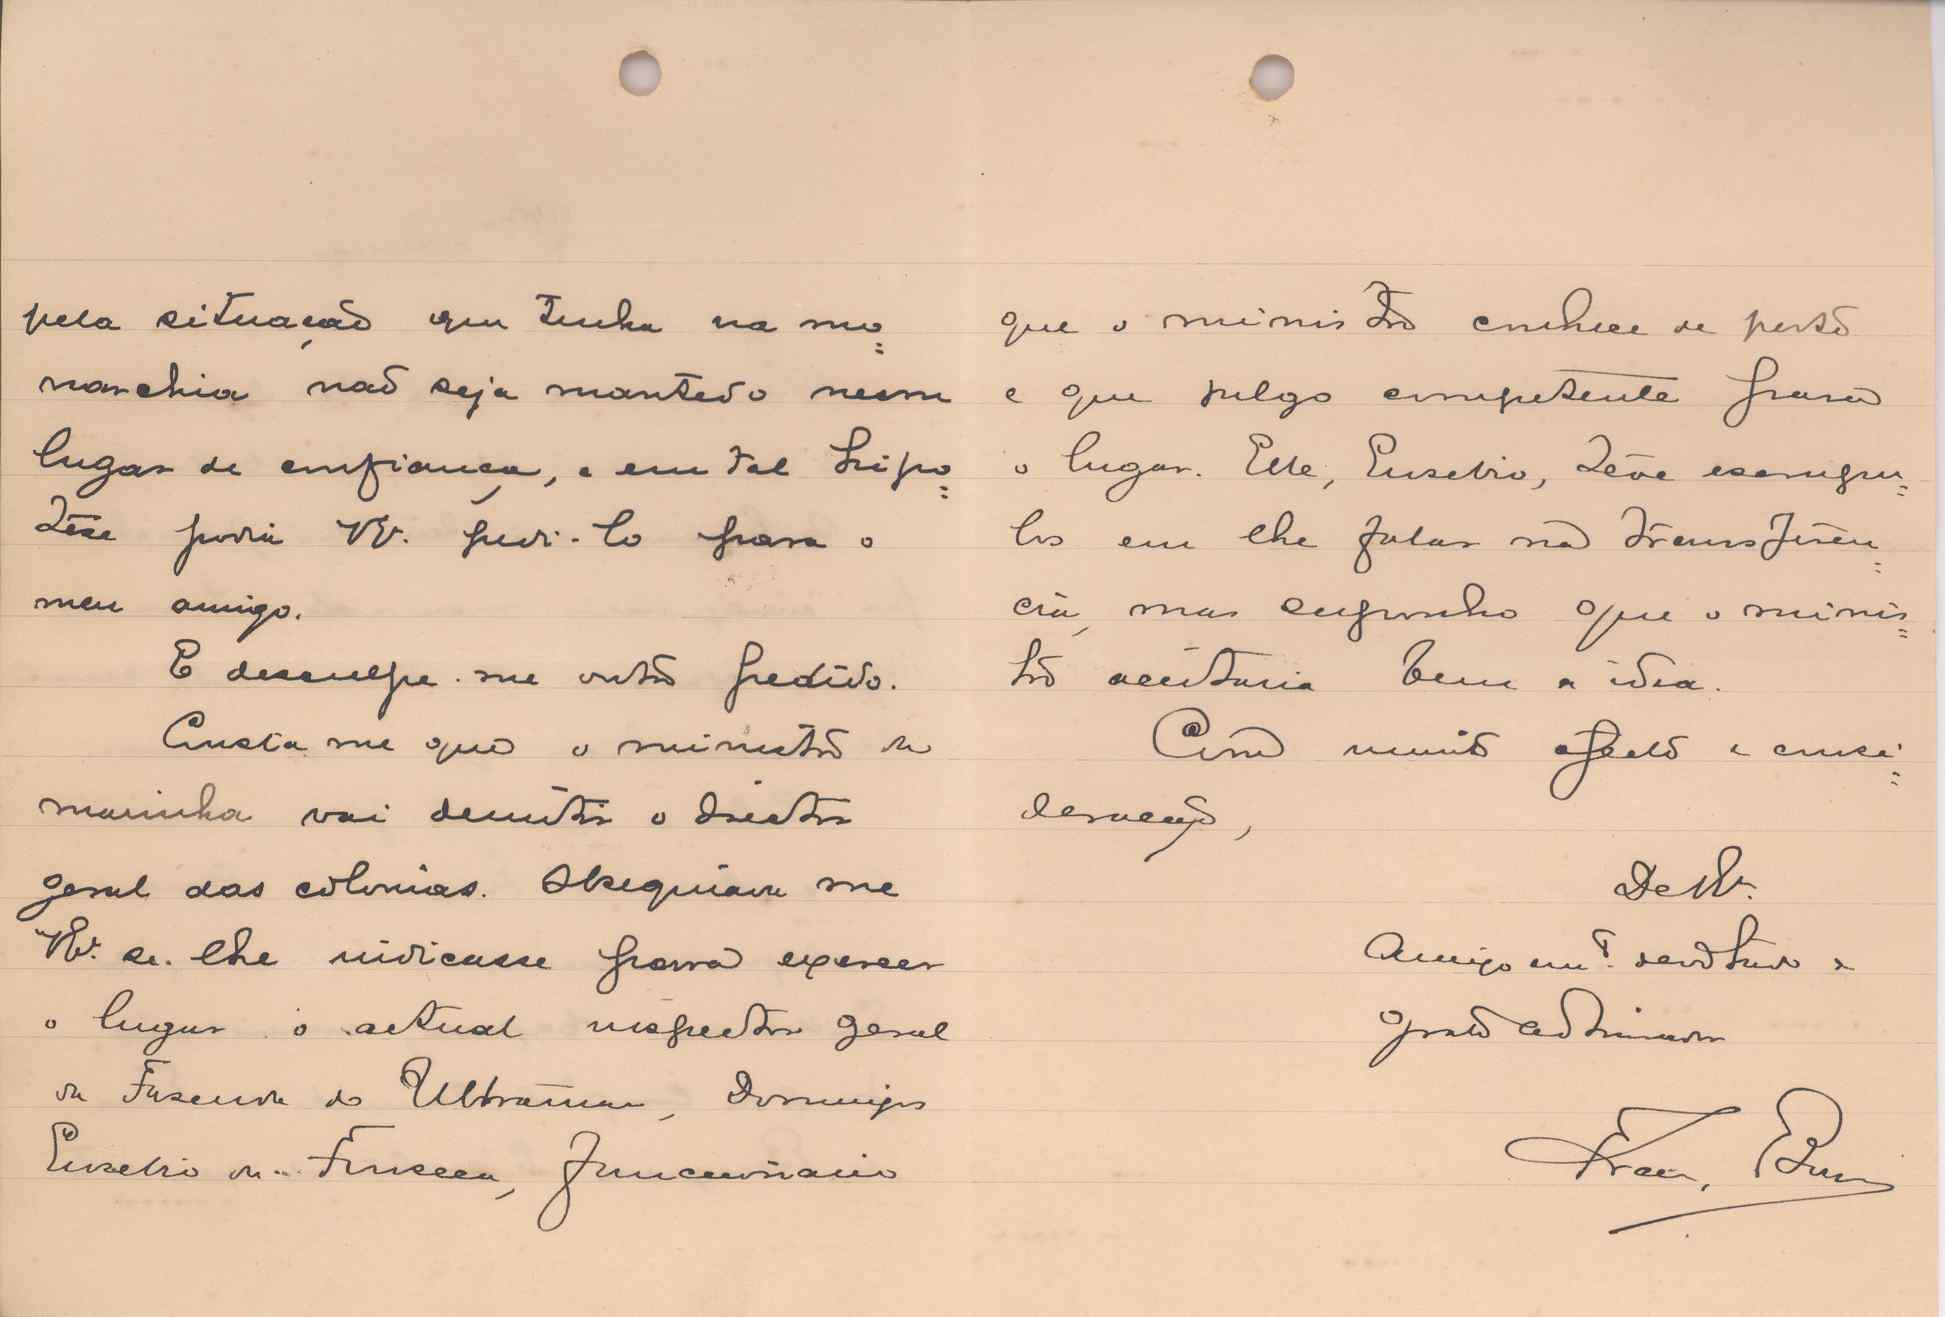 pela situação que tinha na mo=
narchia não seja mantido nesse
lugar de confiança, e em tal hipo=
tese podia VEx. pedi-lo para o
meu amigo.
E desculpe-me outro pedido.
Consta-me que o ministro da
marinha vai demitir o director
geral das colonias. Obsequiava-me
VEx. se lhe indicasse para exercer
o lugar o actual inspector geral
da Fazenda do Ultramar, Domingos
Eusebio da Fonseca, funccionario
que o ministro conhece de perto
e que julgo competente para
o lugar. Elle, Eusebio, teve escrupu=
los em lhe falar na transferen=
cia, mas supponho que o minis=
tro aceitaria bem a idea.
Com muito afecto e consi=
deração,
De VEx.
Amigo devotado e
grato admirador